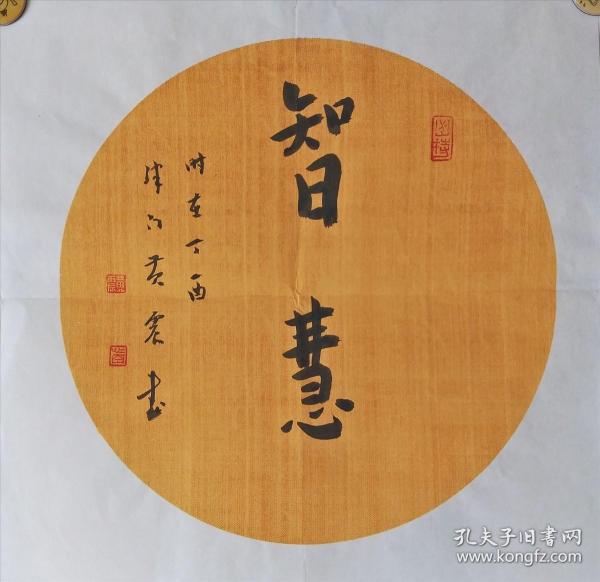 智慧
时在丁酉
津门黄震书
孔夫子旧书网
www.kongfz.com